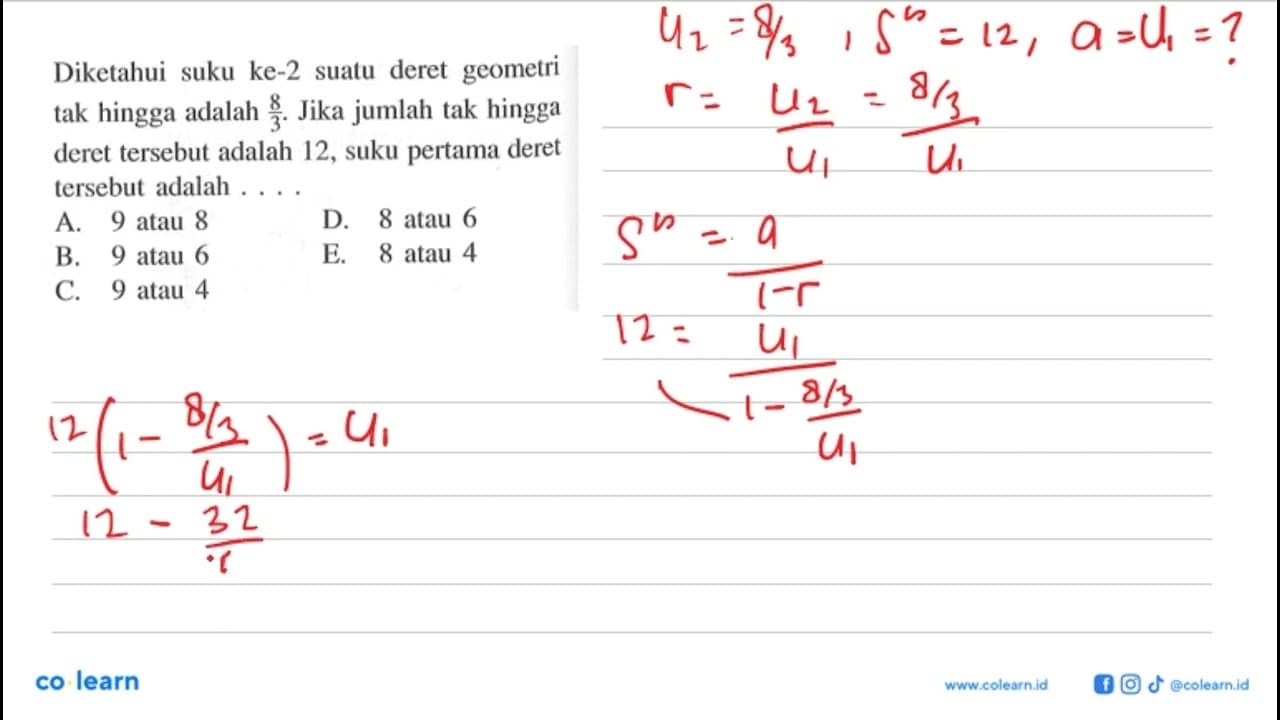 Diketahui suku ke-2 suatu deret geometri
tak hingga adalah 8/3. Jika jumlah tak hingga
deret tersebut adalah 12, suku pertama deret
tersebut adalah . . . .
A. 9 atau 8
B. 9 atau 6
C. 9 atau 4
D. 8 atau 6
E. 8 atau 4
U2 = 8/3 , S∞ = 12, a = U1 = ?
r = U2/U1 = (8/3)/U1
S∞ = a/(1-r)
12 = U1/(1 - (8/3)/U1)
12 (1 - (8/3)/U1) = U1
12 - 32/
co learn
www.colearn.id
@colearn.id